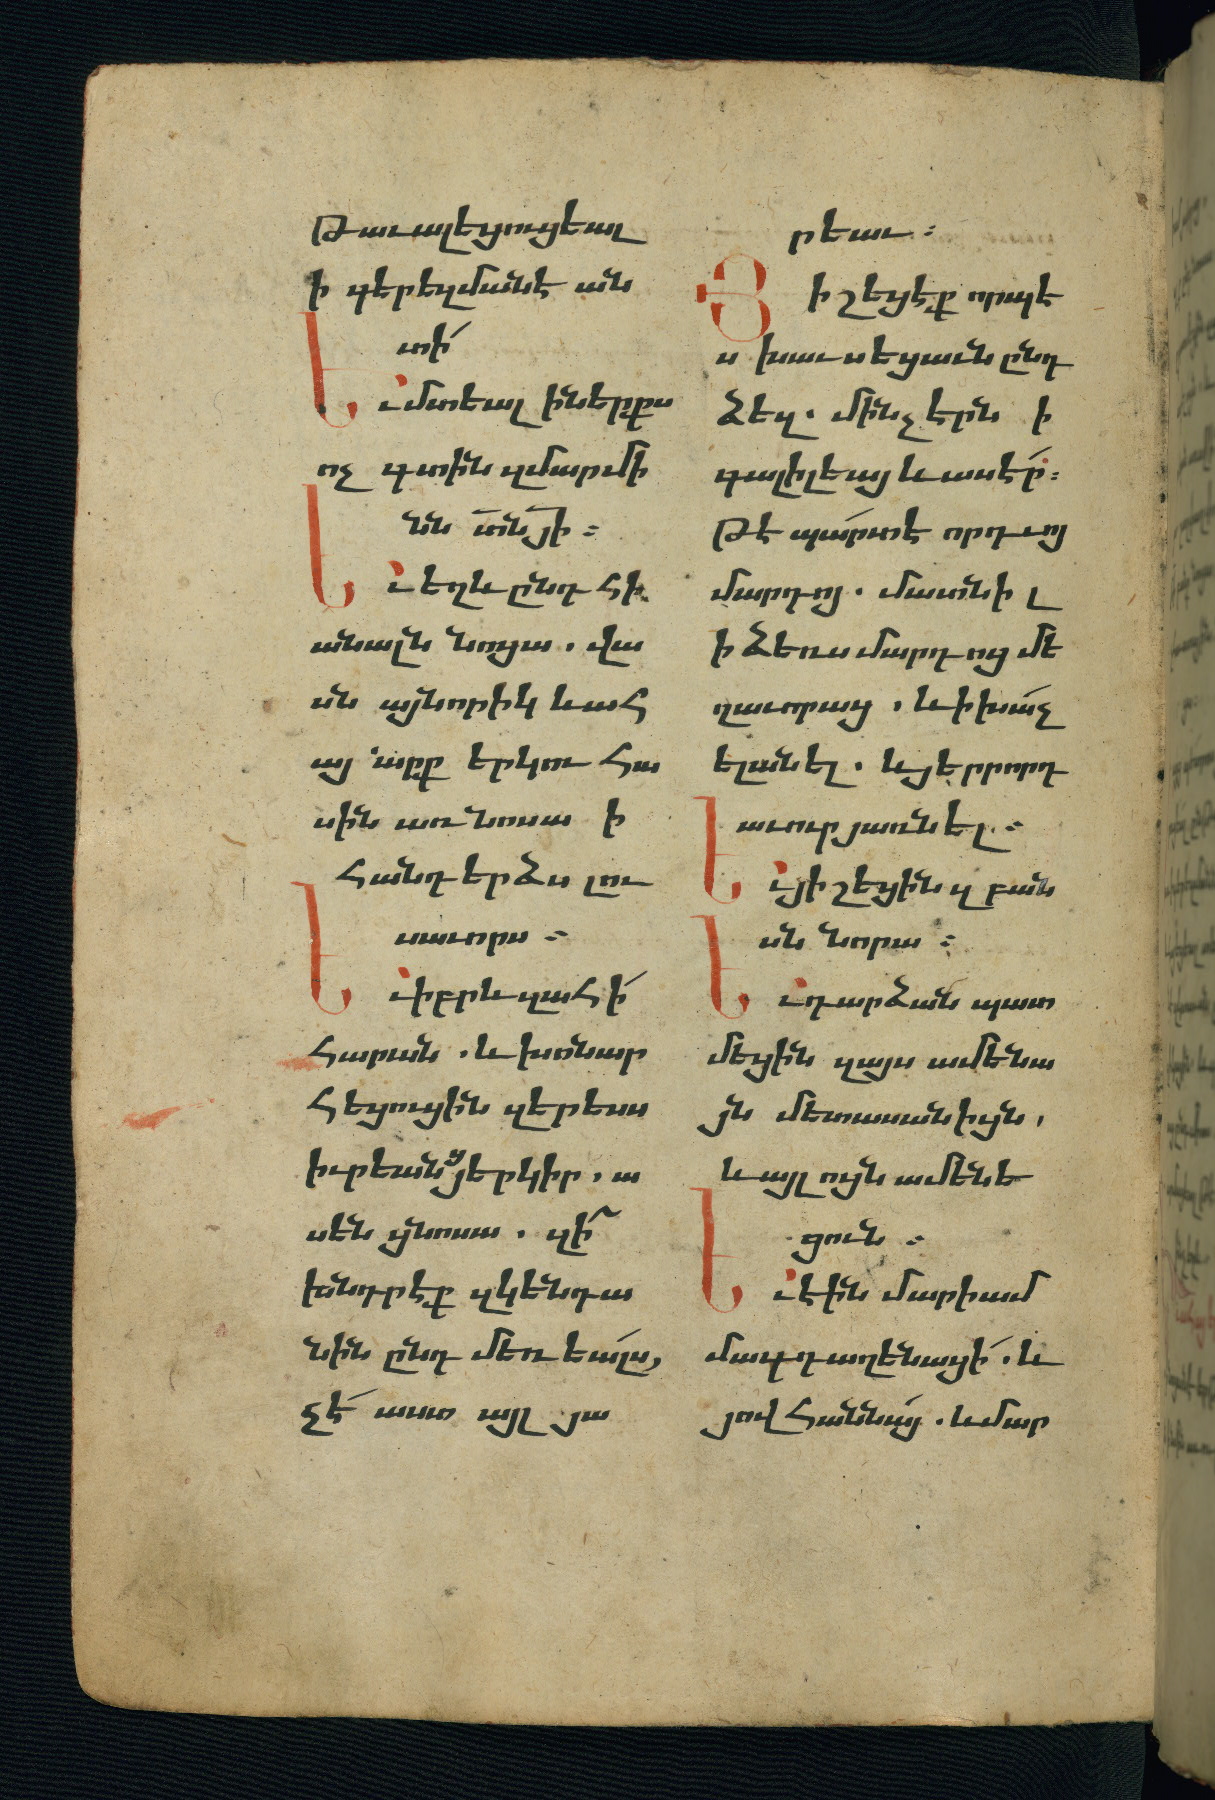 Թաւալեցուցեալ
ի գերեզմանէ ան
տի՛
Եւ մտեալ ի ներքս
ոչ գտին զմարմի
նն տն յի ։
Եւ եղև ընդ հի
անալն նոցա . վա
սն այնորիկ և ահ
այ արք երկու հա
սին առ նոսա ի
հանդերձս լու
սաւորս ։
Եւ իբրև զահի՛
հարան . և խոնար
հեցուցին զերեսս
իւրեանց յերկիր . ա
սեն ցնոսա . զի՞
խնդրէք զկենդա
նին ընդ մեռեալս,
չէ՛ աստ այլ յա
րեաւ ։
Յիշեցէք որպէ
ս խաւսեցաւն ընդ
ձեզ . մինչ էրն ի
գալիլեայ և ասէր ։
Թէ պարտ է որդւոյ
մարդոյ . մատնիլ
ի ձեռս մարդոց մե
ղաւորաց . և ի խաչ
ելանել . և յերրորդ
աւուր յառնել ։
Եւ յիշեցին զբան
սն նորա ։
Եւ դարձան պատ
մեցին զայս ամենա
յն մետասանիցն ,
և այլոցն ամենե
ցուն ։
Եւ էին մարիամ
մագդաղենացի՛ . և
յովհաննայ . և մար